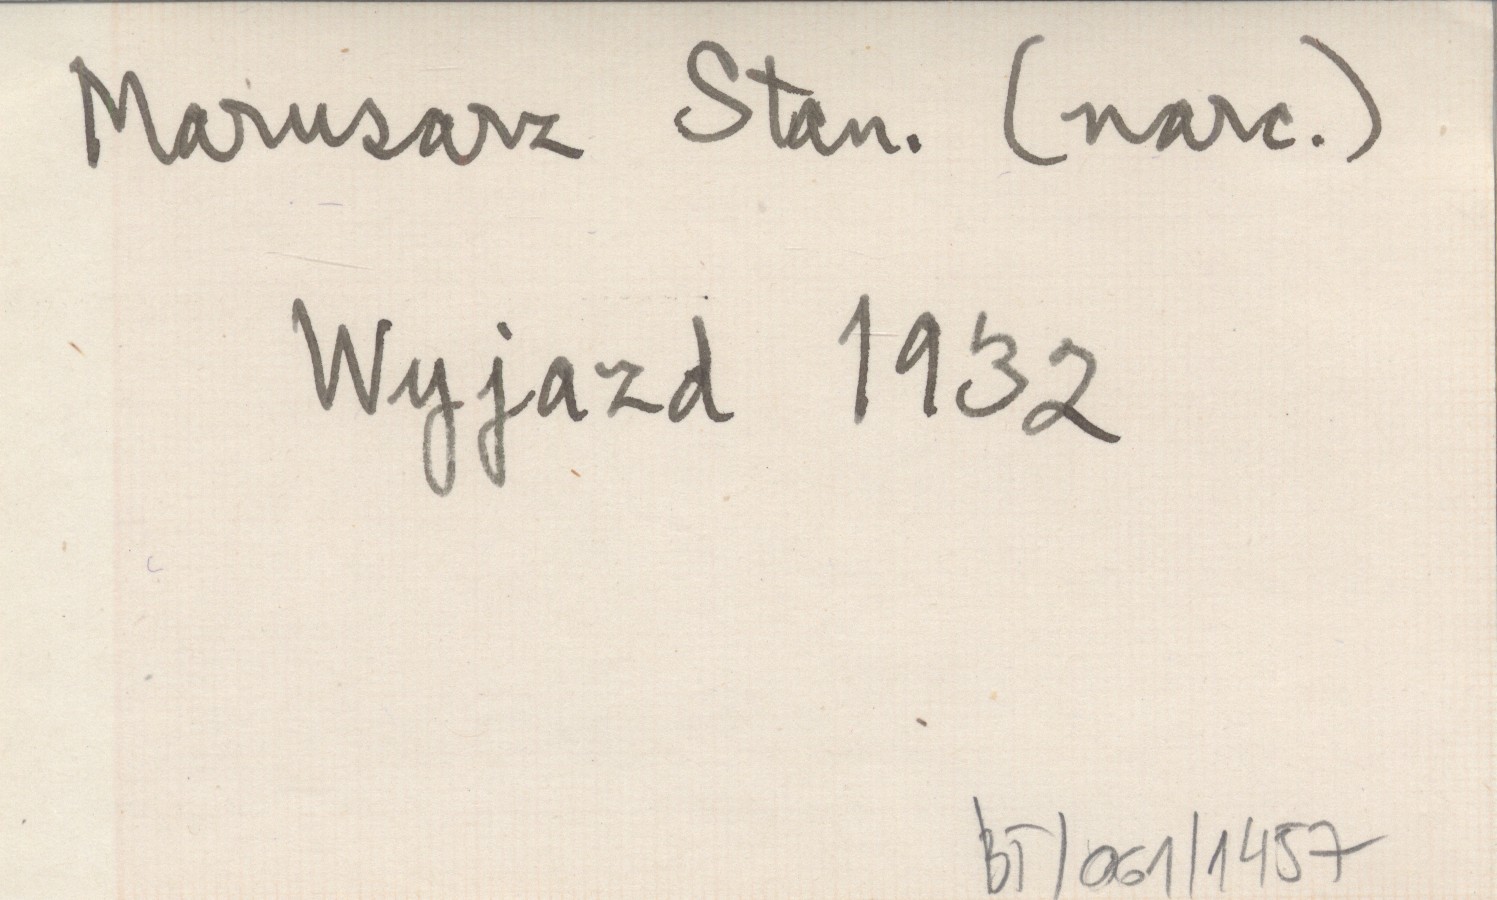 Marusarz Stan. (narc.)
Wyjazd 1932
BT/061/1457